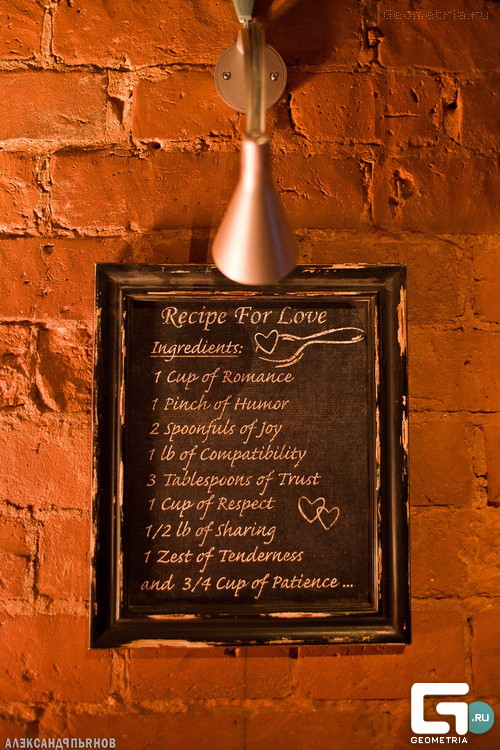 Geometria.ru
Recipe For Love
Ingredients:
1 Cup of Romance
1 Pinch of Humor
2 Spoonfuls of Joy
1 lb of Compatibility
3 Tablespoons of Trust
1 Cup of Respect
1/2 lb of Sharing
1 Zest of Tenderness
and 3/4 Cup of Patience ...
G .RU
GEOMETRIA